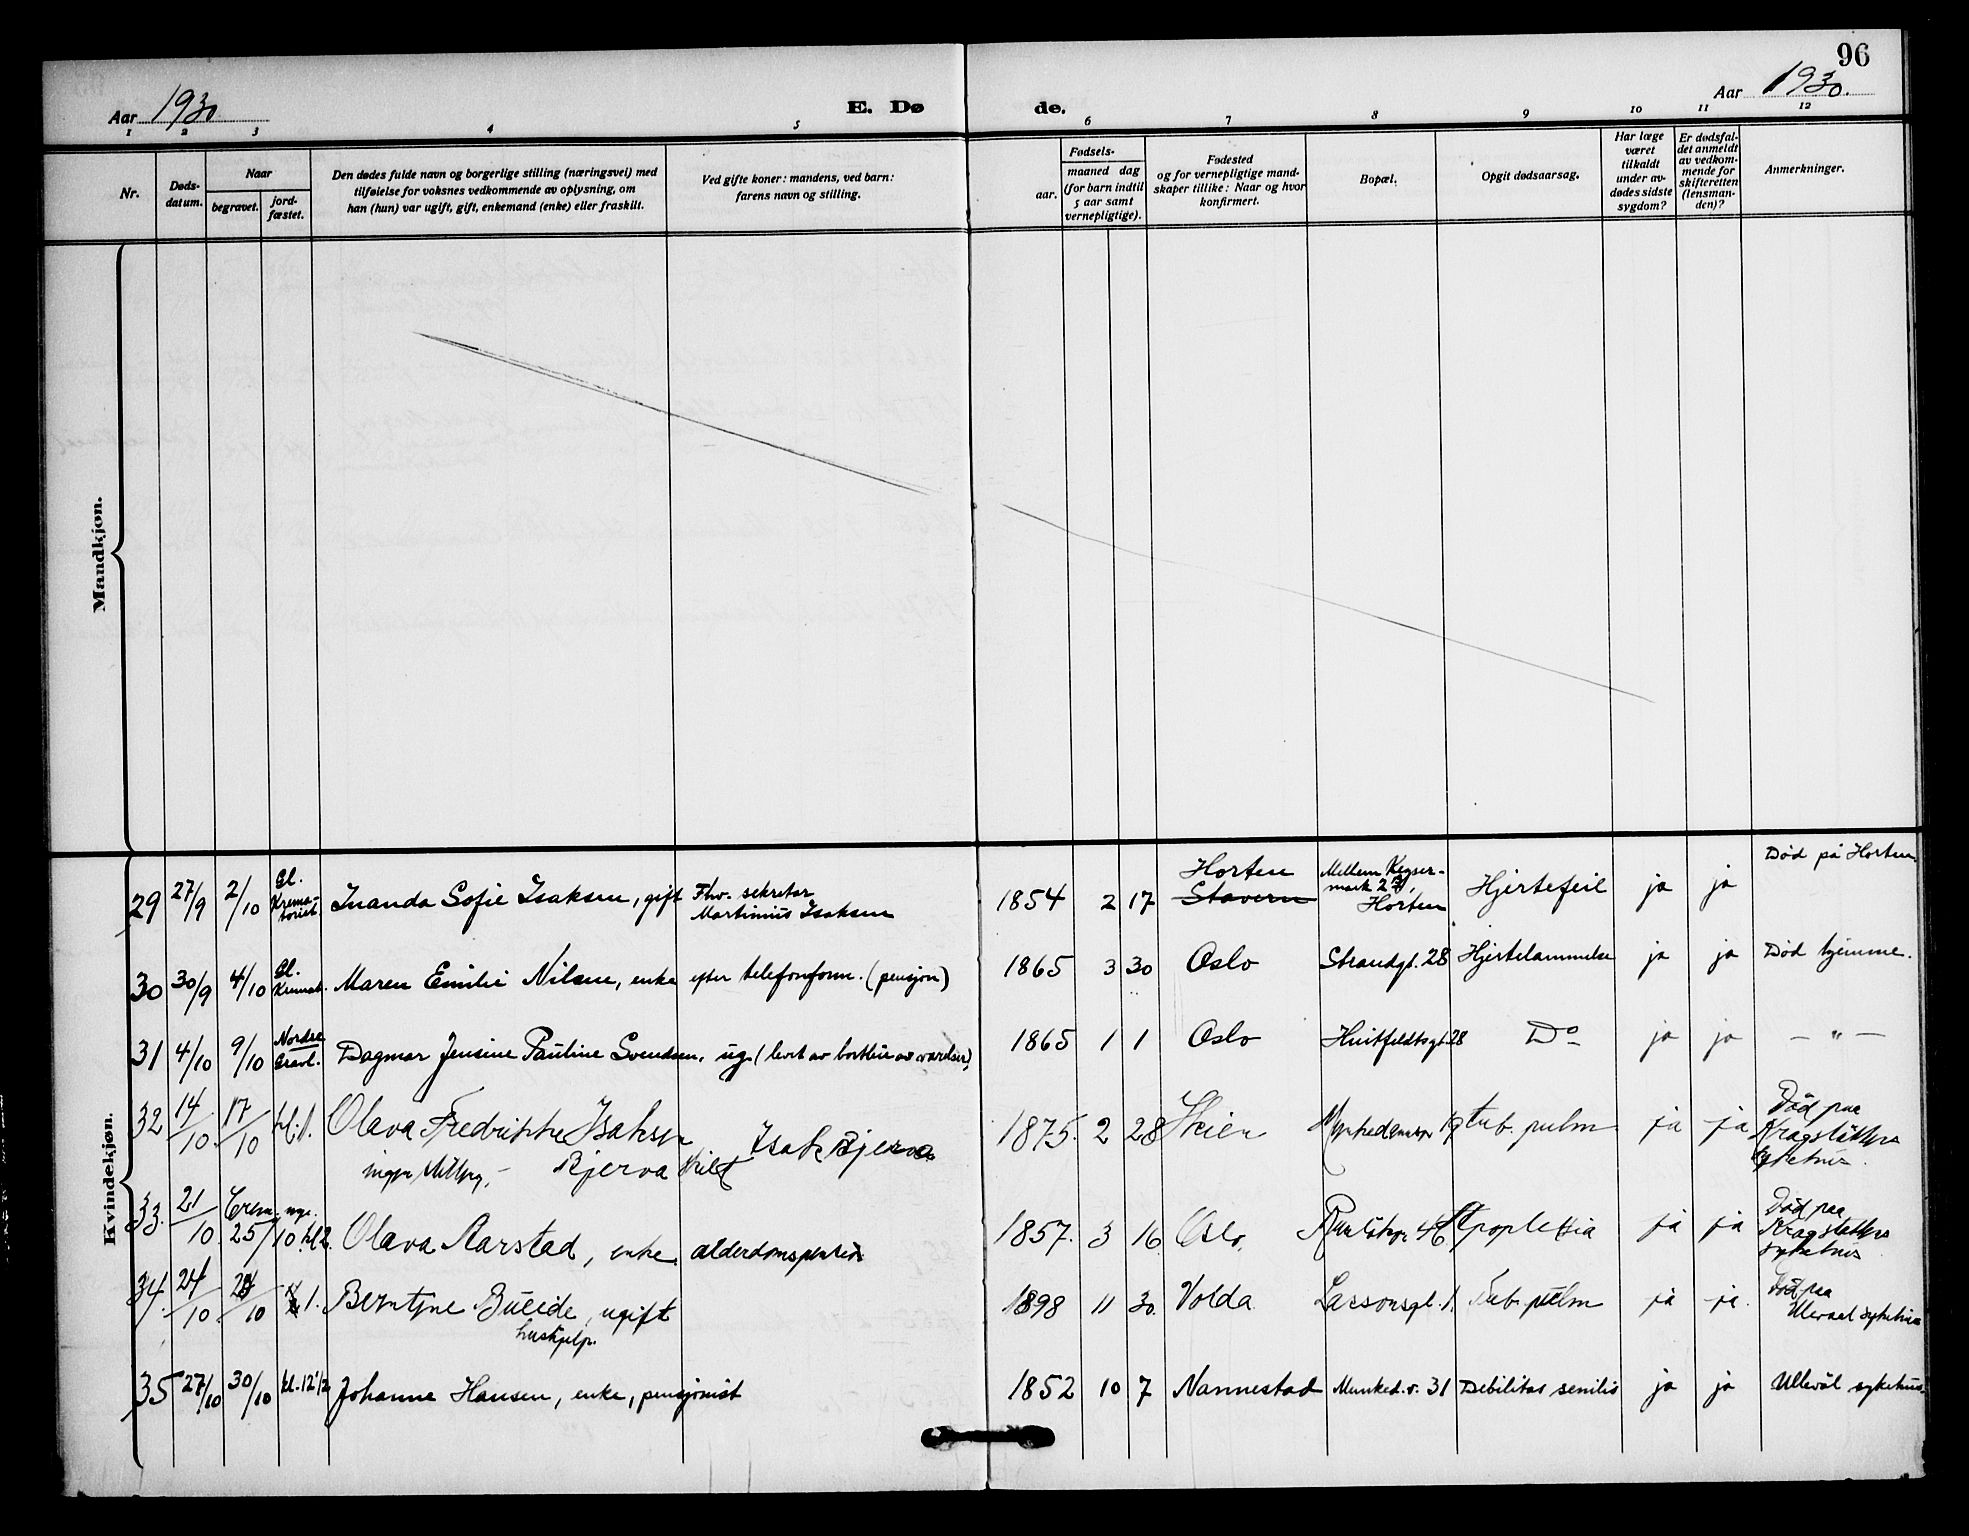 96
Aar 1930
E. Dø de.
Aar 1930.
1 2 3 4 5 6 7 8 9 10 11 12
Nr.
Døds-
datum.
Naar
begravet.
jord-
fæstet.
Den dødes fulde navn og borgerlige stilling (næringsvei) med
tilføielse for voksnes vedkommende av oplysning, om
han (hun) var ugift, gift, enkemand (enke) eller fraskilt.
Ved gifte koner: mandens, ved barn:
farens navn og stilling.
Fødsels-
aar.
maaned dag
(for barn indtil
5 aar samt
vernepligtige).
Fødested
og for vernepligtige mand-
skaper tillike: Naar og hvor
konfirmert.
Bopæl.
Opgit dødsaarsag.
Har læge
været
tilkaldt
under av-
dødes sidste
sygdom?
Er dødsfal-
det anmeldt
av vedkom-
mende for
skifteretten
(lensman-
den)?
Anmerkninger.
Mandkjøn.
Kvindekjøn.
29 27/9 2/10 Gl. Krema-toriet Inanda Sofie Isaksen, gift Fhv. sekretær Martinius Isaksen 1854 2 17 Horten Stavern Mellem Keyser-mark 27, Horten Hjertefeil ja ja Død på Horten.
30 30/9 4/10 Gl. Kremat. Maren Emilie Nilsen, enke efter telefonform. (pensjon) 1865 3 30 Oslo Strandgt. 28 Hjertelammelse ja ja Død hjemme.
31 4/10 9/10 Nordre Gravl. Dagmar Jensine Pauline Svendsen, ug. (levet av bortleie av værelser) 1865 1 1 Oslo Huitfeldtsgt. 28 Do ja ja — " —
32 14/10 17/10 kl. 1. Olava Fredrikke Isaksen Bjerva skilt Isak Bjerva 1875. 2 28 Skien 19 Tub. pulm ja ja Død paa Kragstøttens sykehus.
33. 21/10 Crem. nye. 25/10 kl 2. Olava Aarstad, enke alderdomspension 1857. 3 16 Oslo. 46 Apoplexia ja ja Død paa Kragstøttens sykehus
34. 24/10 28/10 kl 1. Berntine Bueide, ugift hushjelp. 1898 11 30. Volda Lassonsgt. 1. Tub. pulm ja ja. Død paa Ulevaal sykehus
35 27/10 30/10 kl. 12 1/2 Johanne Hansen, enke, pensjonist 1852 10 7 Nannestad Munked. v. 31 Debilitas senilis ja ja Ullevål sykehus.